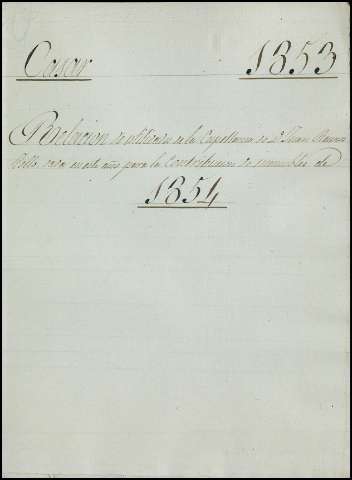 Casar 1853
Relacion de utilidades de la Capellania de Dn. Juan Ramos
dada en este año para la Contribucion de inmuebles de
1854